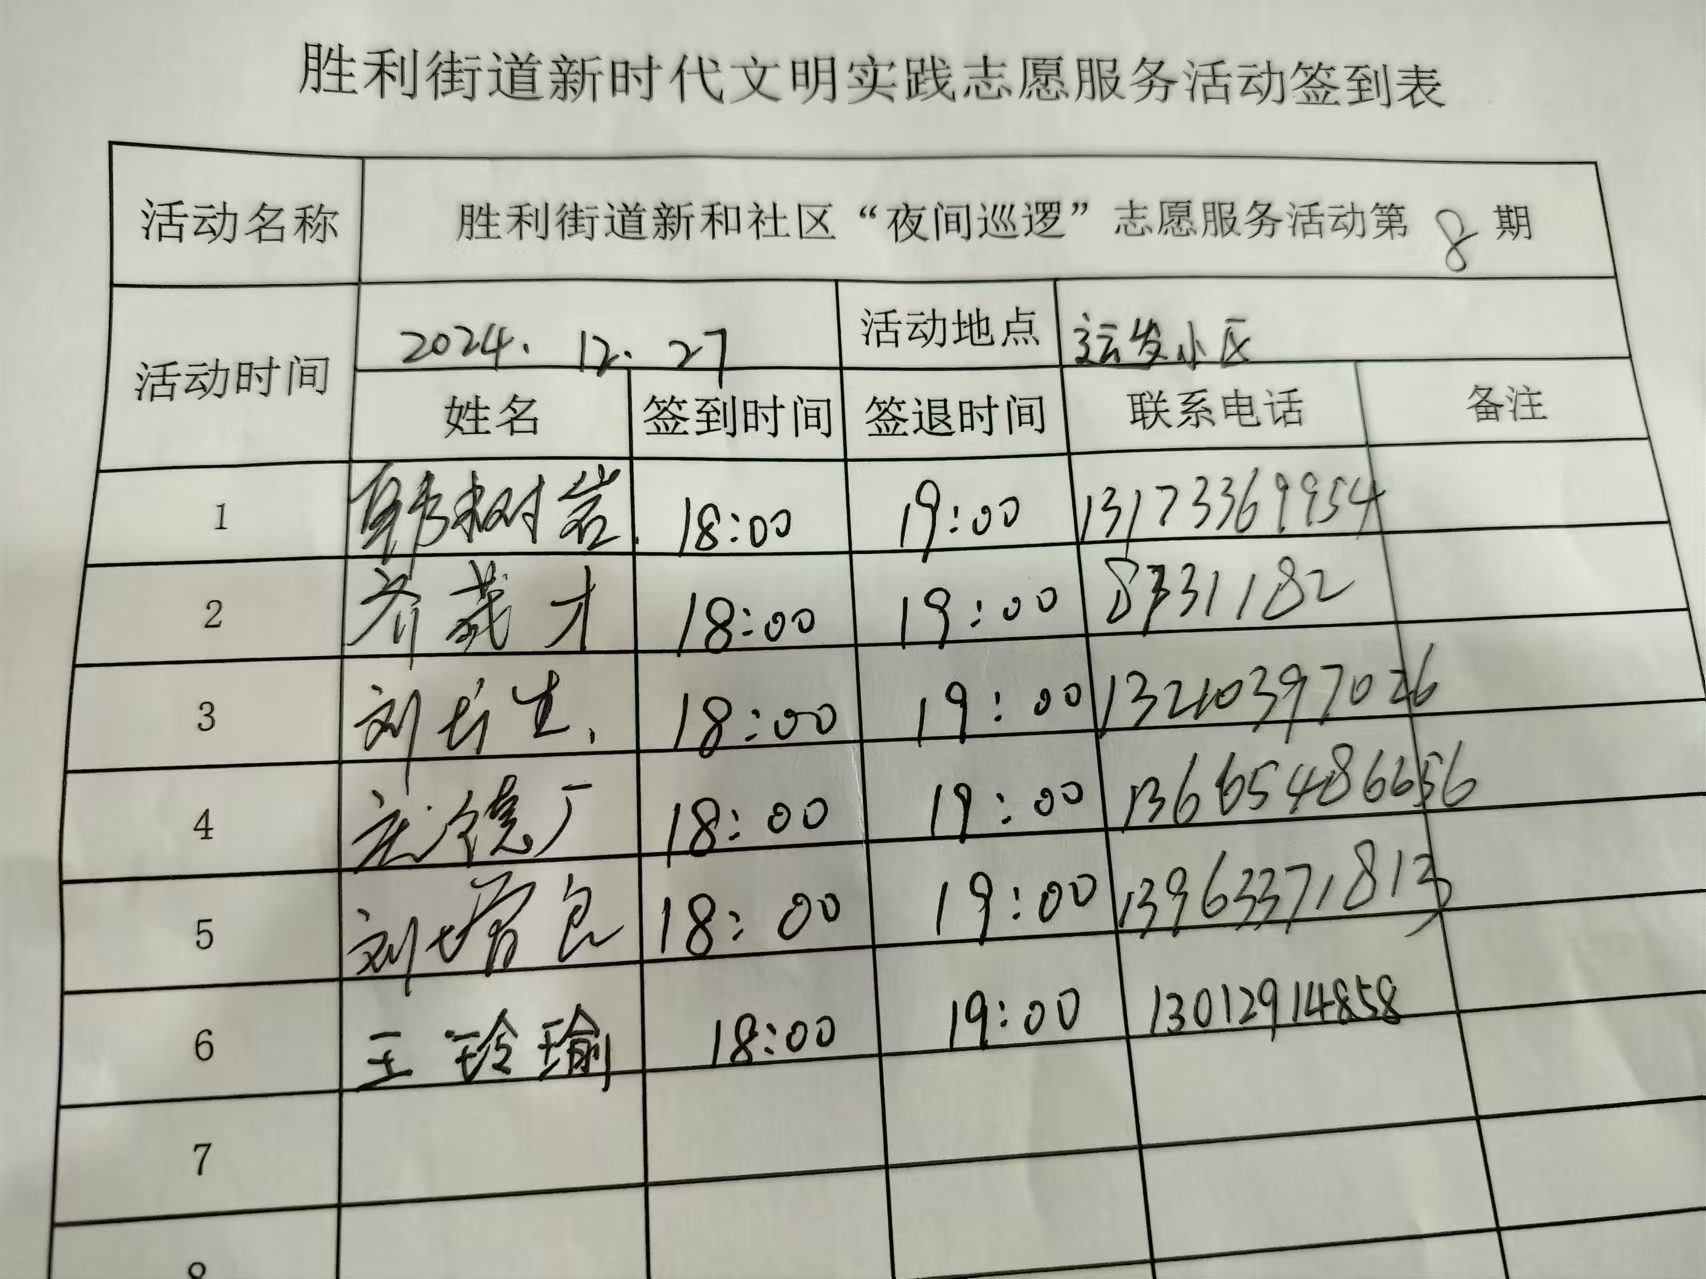 胜利街道新时代文明实践志愿服务活动签到表
活动名称 胜利街道新和社区“夜间巡逻”志愿服务活动第 8 期
活动时间 2024.12.27 活动地点 运发小区
姓名 签到时间 签退时间 联系电话 备注
1 韩树岩 18:00 19:00 13173369954
2 齐茂才 18:00 19:00 8731182
3 刘 生 18:00 19:00 13210397026
4 德广 18:00 19:00 13665486656
5 刘增 18:00 19:00 13963371813
6 王玲瑜 18:00 19:00 13012914858
7
8